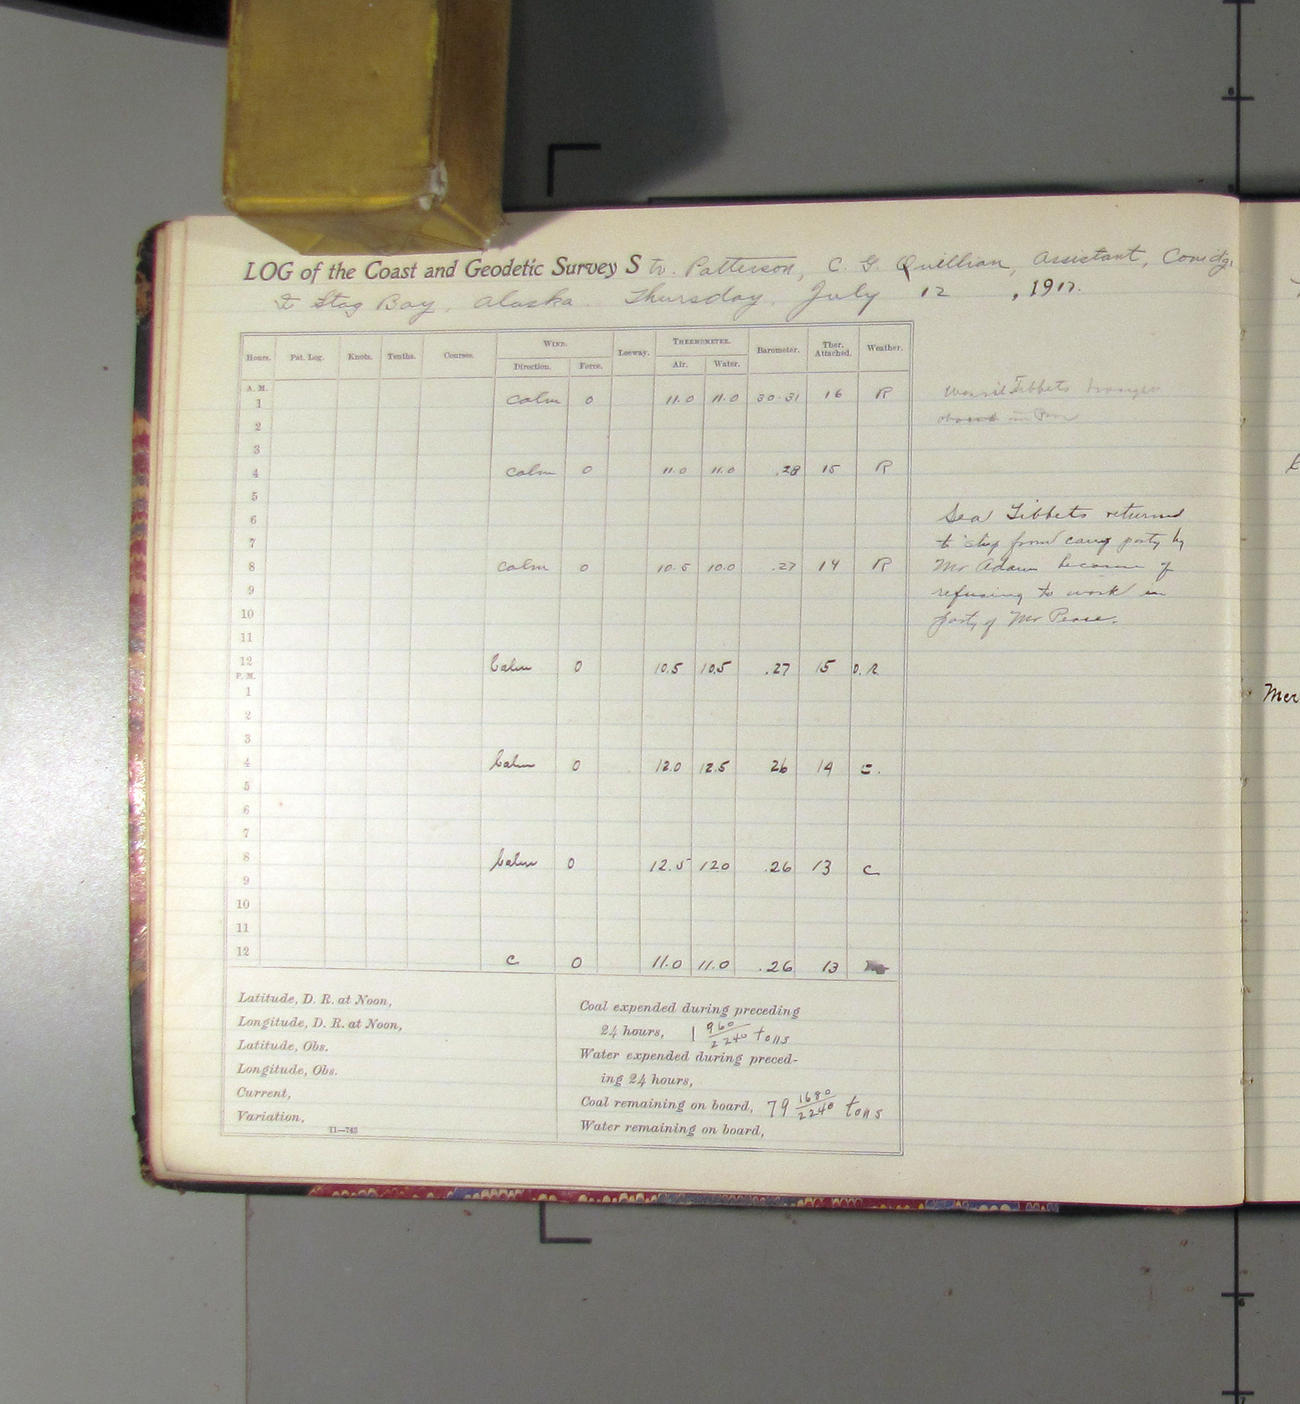 LOG of the Coast and Geodetic Survey Str. Patterson, C. G. Quillian, Assistant, Comdg.
Stag Bay, Alaska Thursday, July 12, 1917.
Hours. Pat. Log. Knots. Tenths. Courses. WIND. Leeway. THERMOMETER. Barometer. Ther. Attached. Weather.
Direction. Force. Air. Water.
A. M.
1 Calm 0 11.0 11.0 30.31 16 R
2
3
4 Calm 0 11.0 11.0 .28 15 R
5
6
7
8 Calm 0 10.5 10.0 .27 14 R
9
10
11
12 Calm 0 10.5 10.5 .27 15 O.R.
P. M.
1
2
3
4 Calm 0 12.0 12.5 26 14 C.
5
6
7
8 Calm 0 12.5 120 .26 13 C
9
10
11
12 C 0 11.0 11.0 .26 13
Tibbets
Sea Tibbets returned
to ship from camp party by
Mr Adams because of
refusing to work in
party of Mr Pease.
Latitude, D. R. at Noon,
Longitude, D. R. at Noon,
Latitude, Obs.
Longitude, Obs.
Current,
Variation,
11—763
Coal expended during preceding
24 hours, 1 960/2240 tons
Water expended during preced-
ing 24 hours,
Coal remaining on board, 79 1680/2240 tons
Water remaining on board,
Mer